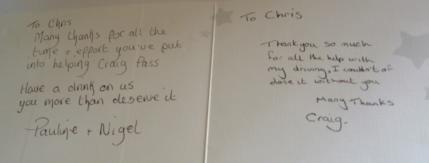 To Chris
Many thanks for all the
time + effort you've put
into helping Craig Pass
Have a drink on us
you more than deserve it
Pauline + Nigel
To Chris
Thank you so much
for all the help with
my driving, I couldn't of
done it without you
Many Thanks
Craig.